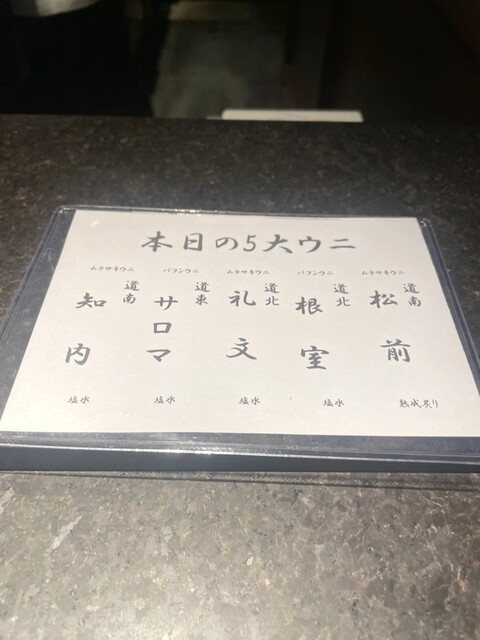 本日の5大ウニ
ムラサキウニ
道南
松前
熟成炙り
バフンウニ
道北
根室
塩水
ムラサキウニ
道北
礼文
塩水
バフンウニ
道東
サロマ
塩水
ムラサキウニ
道南
知内
塩水